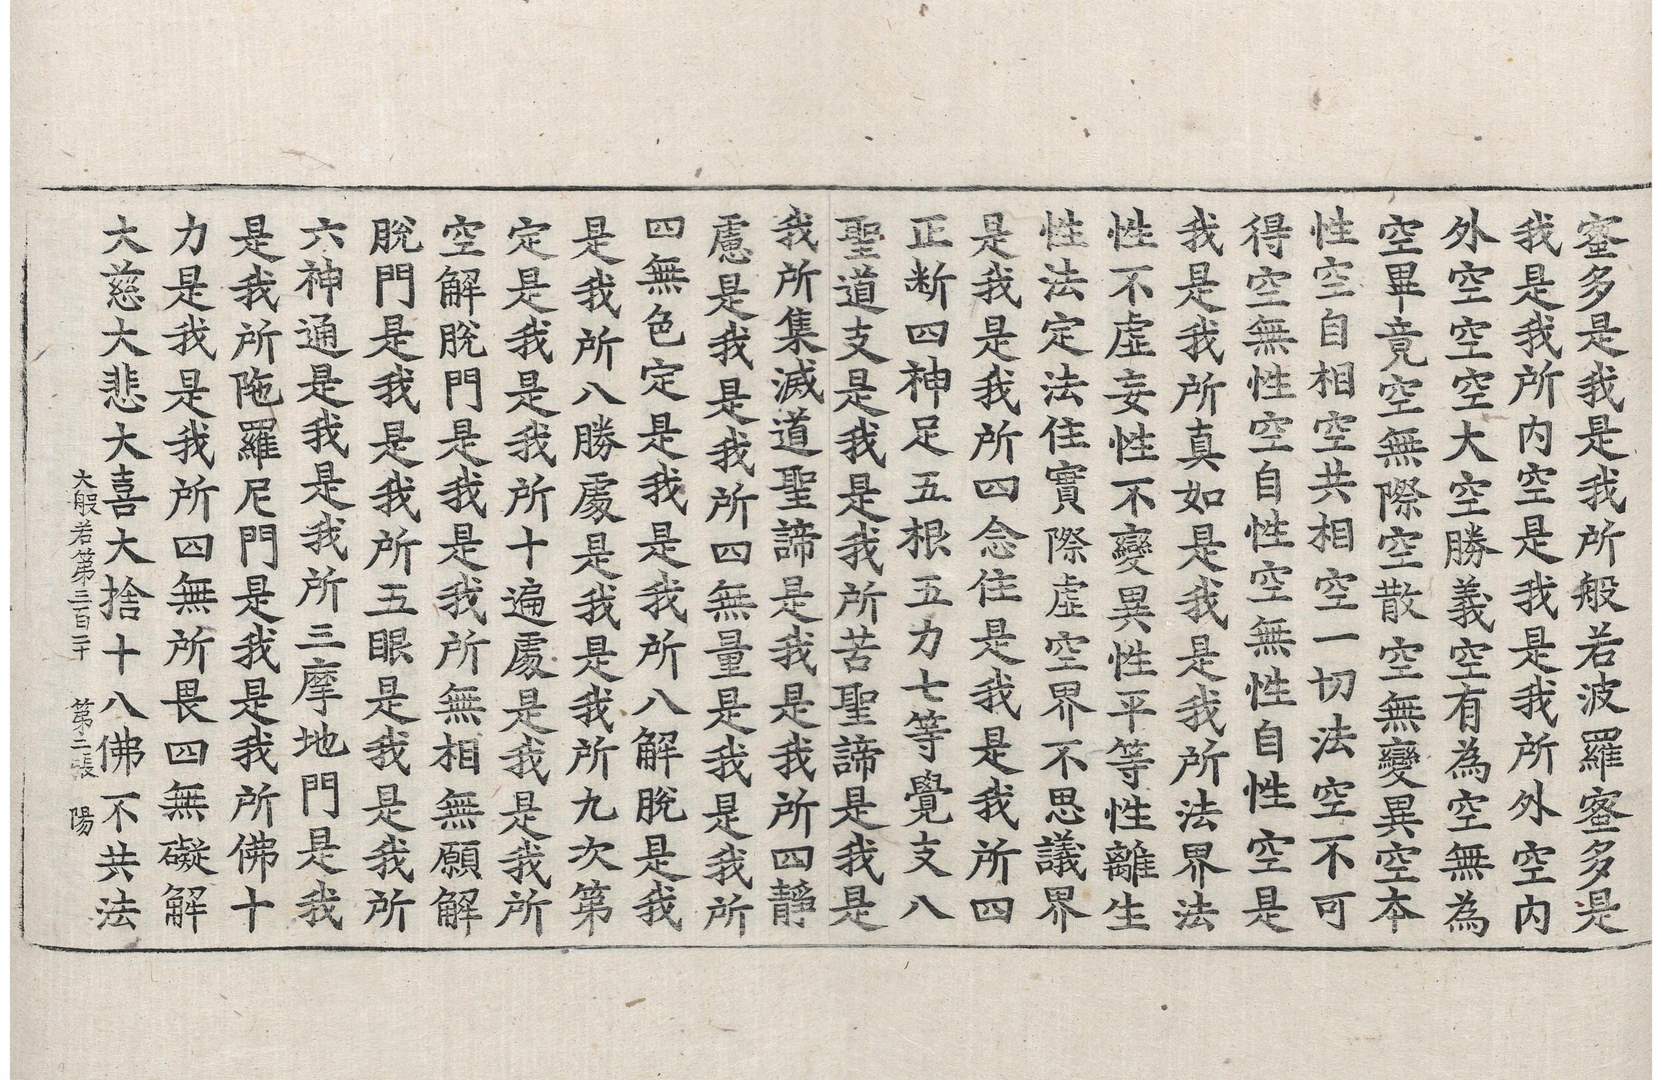 蜜多是我是我所般若波羅蜜多是
我是我所内空是我是我所外空内
外空空空大空勝義空有為空無為
空畢竟空無際空散空無變異空本
性空自相空共相空一切法空不可
得空無性空自性空無性自性空是
我是我所真如是我是我所法界法
性不虛妄性不變異性平等性離生
性法定法住實際虛空界不思議界
是我是我所四念住是我是我所四
正断四神足五根五力七等覺支八
聖道支是我是我所苦聖諦是我是
我所集滅道聖諦是我是我所四靜
慮是我是我所四無量是我是我所
四無色定是我是我所八解脫是我
是我所八勝處是我是我所九次第
定是我是我所十遍處是我是我所
空解脫門是我是我所無相無願解
脫門是我是我所五眼是我是我所
六神通是我是我所三摩地門是我
是我所陁羅尼門是我是我所佛十
力是我是我所四無所畏四無礙解
大慈大悲大喜大捨十八佛不共法
大般若第三百二十 第二張 陽